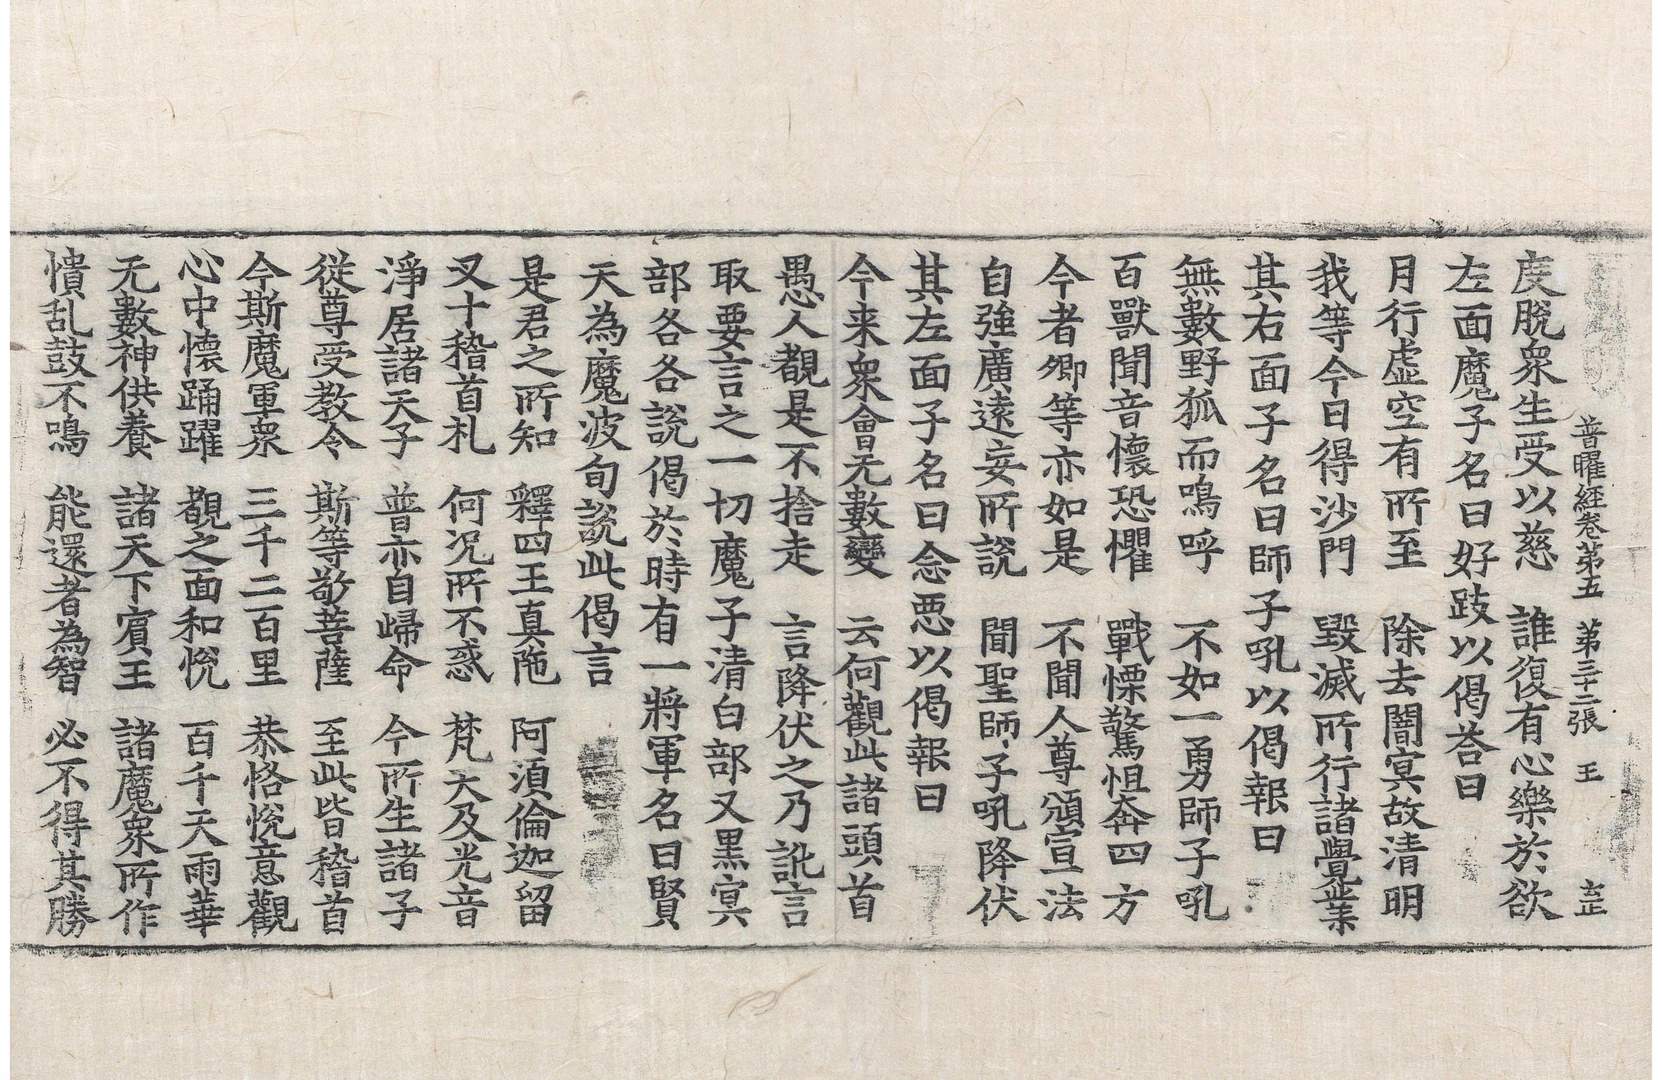 普曜経卷第五 第三十二張 王 玄正
度脫衆生受以慈 誰復有心樂於欲
左面魔子名曰好妓以偈荅曰
月行虛空有所至 除去闇冥故清明
我等今日得沙門 毀滅所行諸覺業
其右面子名曰師子吼以偈報曰
無數野狐而鳴呼 不如一勇師子吼
百獸聞音懷恐懼 戰慄驚怛奔四方
今者卿等亦如是 不聞人尊頒宣法
自強廣遠妄所說 聞聖師子吼降伏
其左面子名曰念惡以偈報曰
今来衆會无數變 云何觀此諸頭首
愚人覩是不捨走 言降伏之乃訛言
取要言之一切魔子清白部又黒冥
部各各說偈於時有一將軍名曰賢
天為魔波旬說此偈言
是君之所知 釋四王真陁 阿須倫迦留
叉十稽首礼 何況所不惑 梵天及光音
淨居諸天子 普亦自歸命 今所生諸子
從尊受教令 斯等敬菩薩 至此皆稽首
今斯魔軍衆 三千二百里 恭恪恱意觀
心中懷踊躍 覩之面和恱 百千天雨華
无數神供養 諸天下賔王 諸魔衆所作
憒乱鼓不鳴 能還者為智 必不得其勝